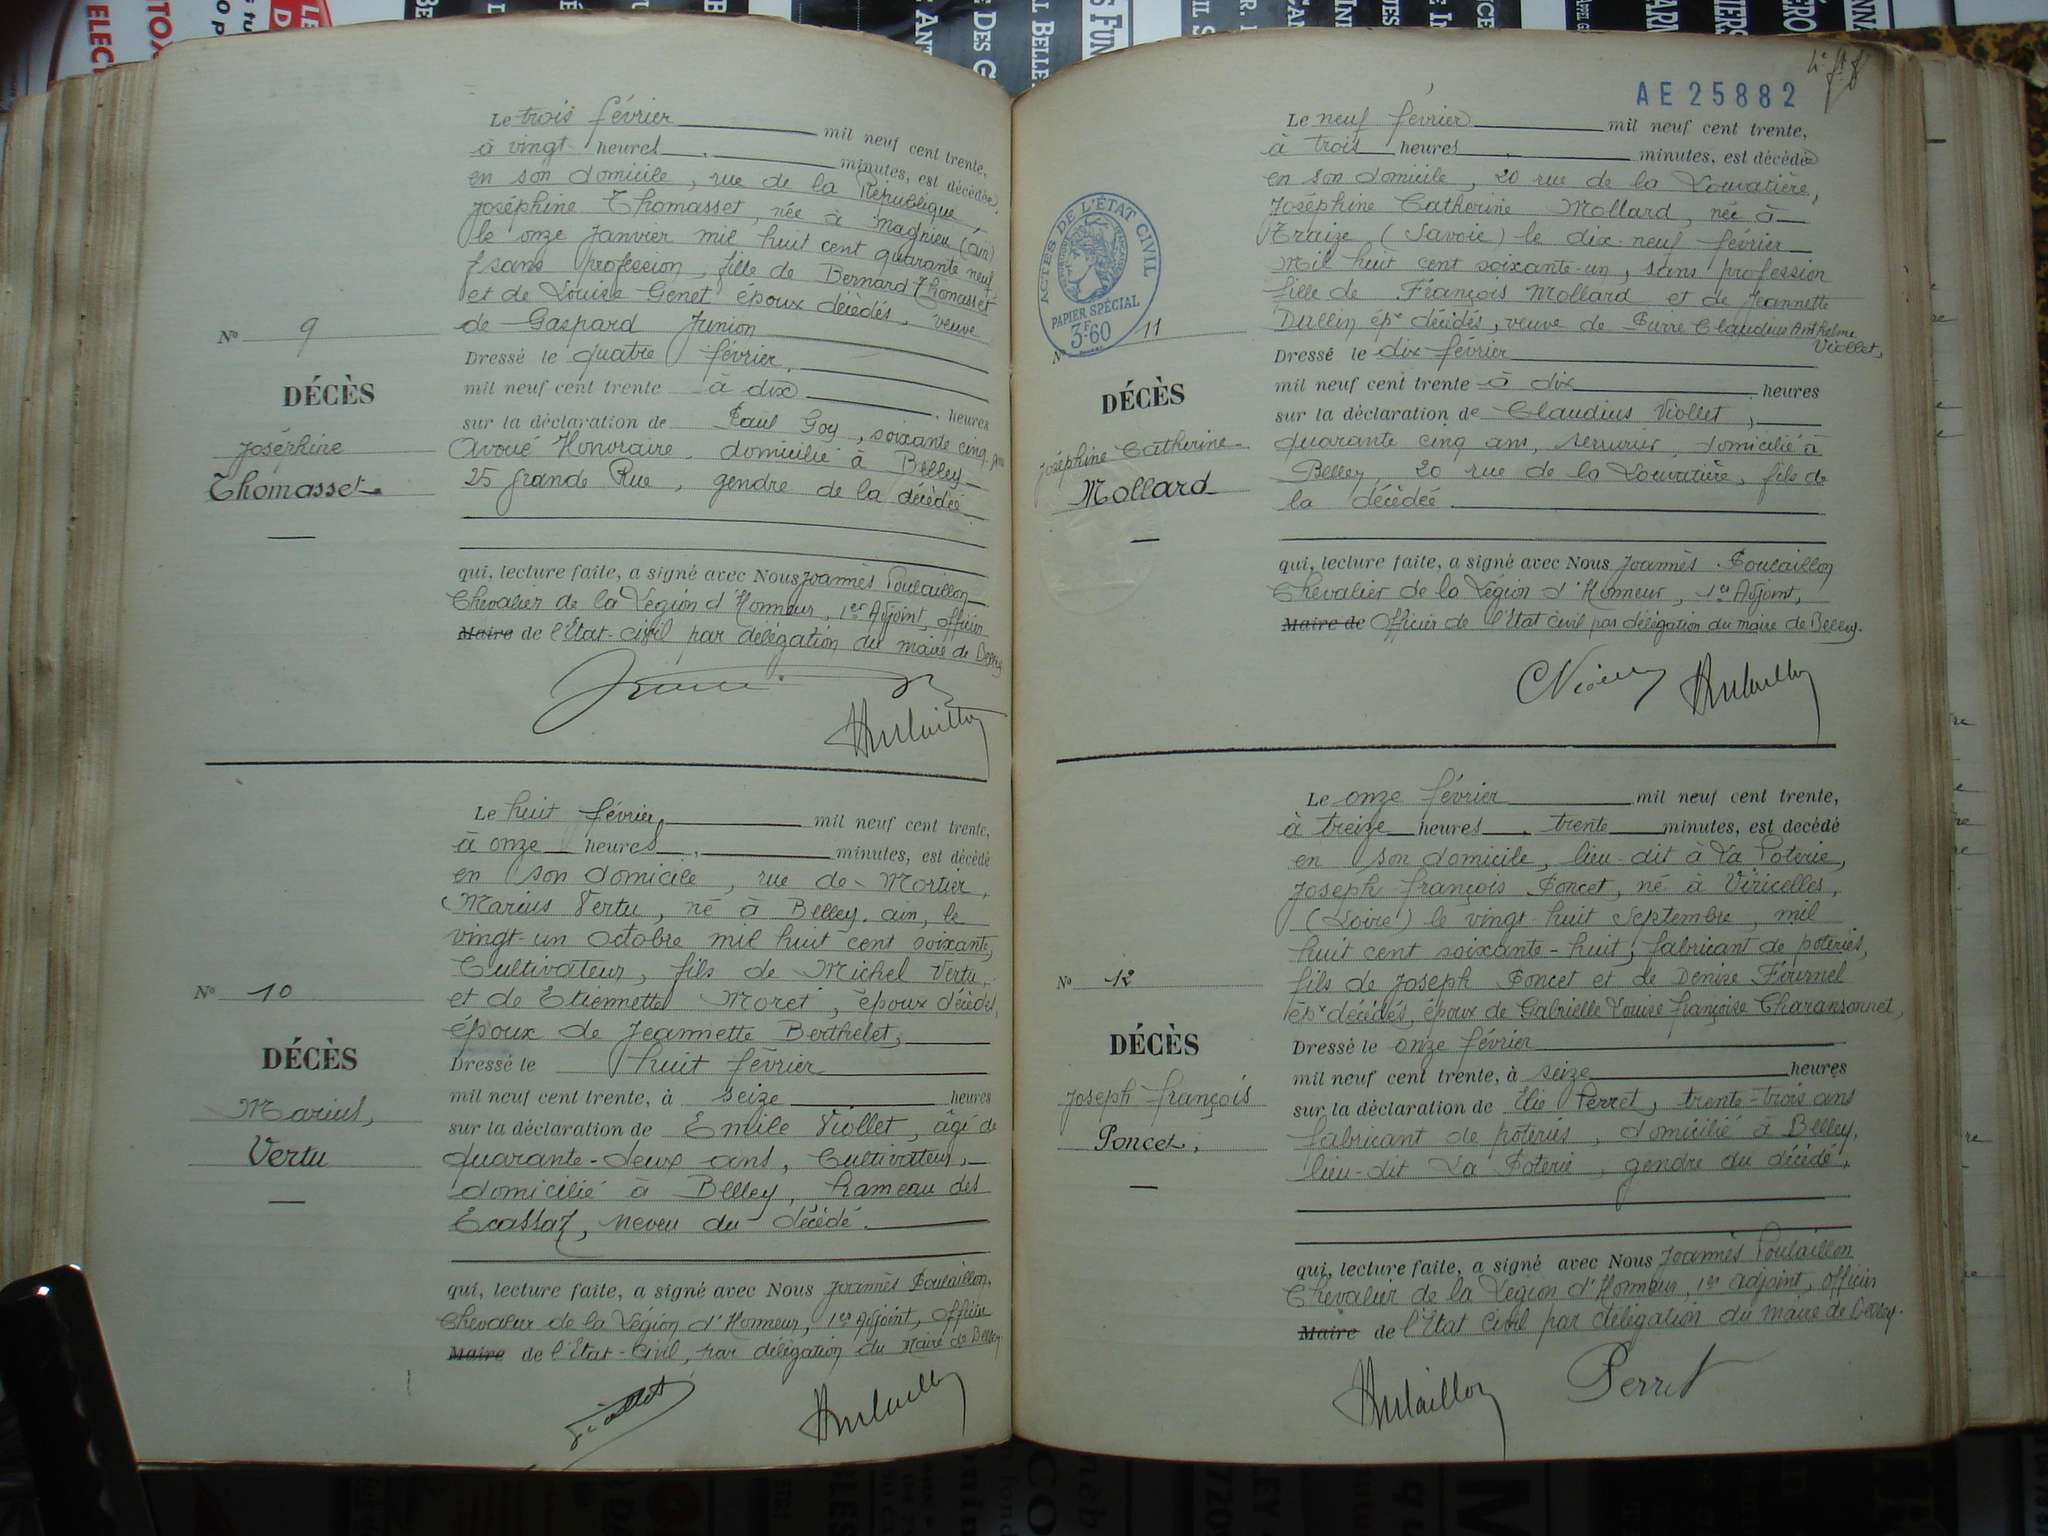 Le trois février mil neuf cent trente,
à vingt heures minutes, est décédée
en son domicile, rue de la République,
Joséphine Thomasset, née à Magnieu (ain)
le onze Janvier mil huit cent quarante neuf
sans profession, fille de Bernard Thomasset
et de Louise Genet époux décédés, veuve
de Gaspard Junion
Nº 9
DÉCÈS
Joséphine
Thomasset
Dressé le quatre février
mil neuf cent trente à dix heures
sur la déclaration de Paul Goy, soixante cinq ans
Avoué Honoraire domicilié à Belley
25 Grande Rue, gendre de la décédée
qui, lecture faite, a signé avec Nous Joannès Poulaillon
Chevalier de la Légion d'Honneur, 1er Adjoint, officier
Maire de l'Etat-civil par délégation du maire de Belley
Le huit février mil neuf cent trente,
à onze heures minutes, est décédé
en son domicile, rue de Mortier,
Marius Vertu, né à Belley, ain, le
vingt-un octobre mil huit cent soixante,
Cultivateur, fils de Michel Vertu
et de Etiennette Moret, époux décédés,
époux de Jeannette Berthelet,
Nº 10
DÉCÈS
Marius,
Vertu
Dressé le huit février
mil neuf cent trente, à seize heures
sur la déclaration de Emile Viollet, âgé de
quarante-deux ans, Cultivateur,
domicilié à Belley, hameau des
Ecassaz, neveu du décédé.
qui, lecture faite, a signé avec Nous Joannès Poulaillon,
Chevalier de la Légion d'Honneur, 1er Adjoint, Officier
Maire de l'Etat-Civil, par délégation du Maire de Belley
AE 25882
Le neuf février mil neuf cent trente,
à trois heures minutes, est décédée
en son domicile, 20 rue de la Louvatière,
Joséphine Catherine Mollard, née à
Traize (Savoie) le dix-neuf février
Mil huit cent soixante-un, sans profession
fille de François Mollard et de Jeannette
Dullin épx décédés, veuve de Pierre Claudius Anthelme
Viollet,
ACTES DE L'ÉTAT CIVIL
PAPIER SPÉCIAL
3F60
Nº 11
DÉCÈS
Joséphine Catherine
Mollard
Dressé le dix février
mil neuf cent trente à dix heures
sur la déclaration de Claudius Viollet,
quarante cinq ans, serrurier, domicilié à
Belley 20 rue de la Louvatière, fils de
la décédée
qui, lecture faite, a signé avec Nous Joannès Poulaillon
Chevalier de la Légion d'Honneur, 1er Adjoint,
Maire de Officier de l'Etat civil par délégation du maire de Belley.
Le onze février mil neuf cent trente,
à treize heures trente minutes, est decédé
en son domicile, lieu-dit à La Poterie,
Joseph François Poncet, né à Viricelles,
(Loire) le vingt-huit Septembre, mil
huit cent soixante-huit, fabricant de poteries,
fils de Joseph Poncet et de Denise Fournel
épx décédés, époux de Gabrielle Louise Françoise Charansonnet,
Nº 12
DÉCÈS
Joseph François
Poncet,
Dressé le onze février
mil neuf cent trente, à seize heures
sur la déclaration de Elie Perret, trente-trois ans
fabricant de poteries, domicilié à Belley,
lieu-dit La Poterie, gendre du décédé,
qui, lecture faite, a signé avec Nous Joannès Poulaillon
Chevalier de la Légion d'Honneur, 1er adjoint, officier
Maire de l'Etat Civil par délégation du maire de Belley.
Perret